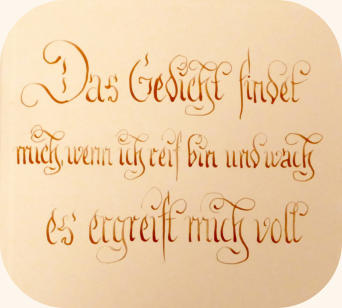 Das Gedicht findet
mich, wenn ich reif bin und wach
es ergreift mich voll